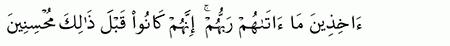 ءَاخِذِينَ مَآ ءَاتَىٰهُمْ رَبُّهُمْ ۚ إِنَّهُمْ كَانُوا۟ قَبْلَ ذَٰلِكَ مُحْسِنِينَ